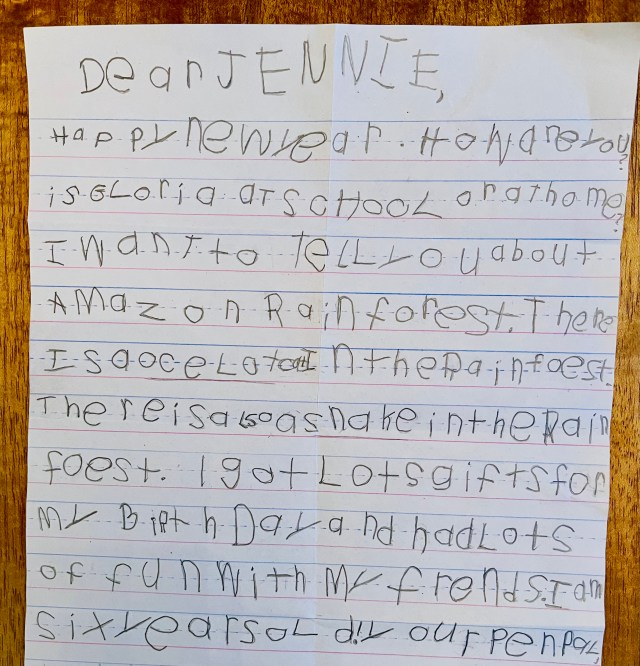 Dear JENNIE,
Happy new year. How are you?
is GLoria at SCHOOL or at home?
I want to TeLL you about
AMazon Rainforest. There
Is a oceLot cat In the Rainfoest.
There is also a snake in the Rain
foest. I got Lots gifts for
My BirthDay and had Lots
of fun with My frends. I am
six years oLd. Your penpaL